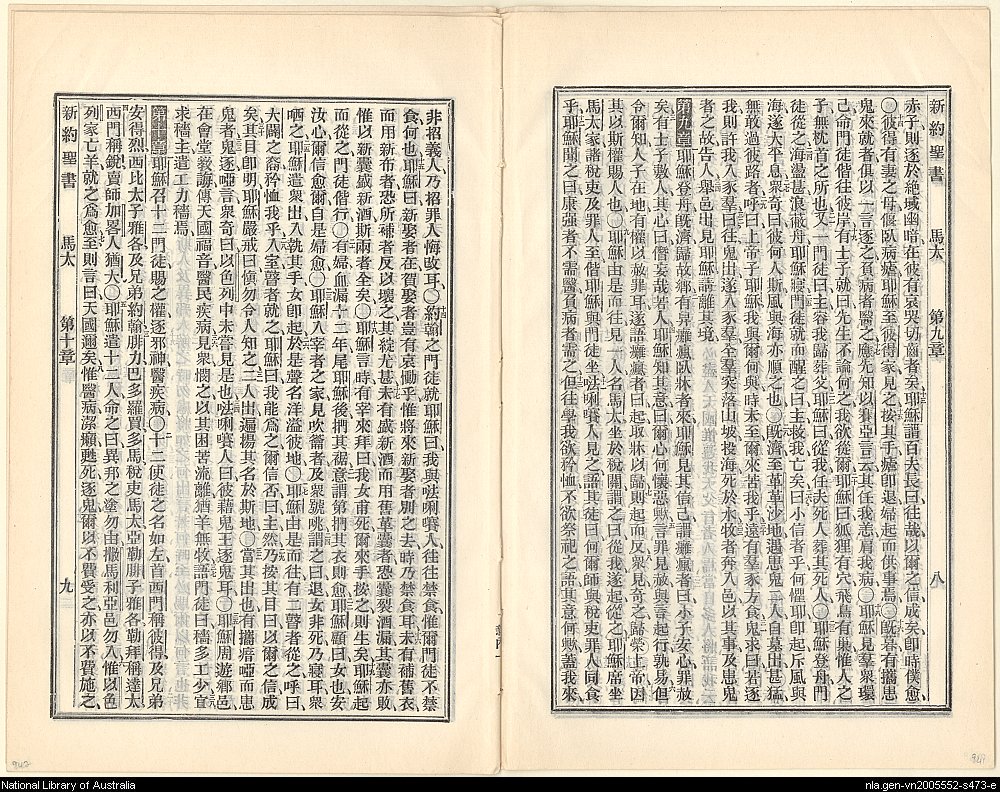 新約聖書 馬太 第九章 八
赤子則逐於絕域幽暗在彼有哀哭切齒者矣耶穌謂百夫長曰往哉以爾之信成矣卽時僕愈
◯彼得有妻之母偃臥病瘧耶穌至彼得家見之按其手瘧卽退婦起而供事焉◯旣暮有攜患
鬼來就者俱以一言逐之負病者醫之應先知以賽亞言云其任我恙肩我病◯耶穌見羣衆環
己命門徒偕往彼岸有士子就曰先生不論何之我欲從爾耶穌曰狐狸有穴飛鳥有巢惟人之
子無枕首之所也又一門徒曰主容我歸葬父耶穌曰從我任夫死人葬其死人◯耶穌登舟門
徒從之海蕩甚浪蔽舟耶穌寢門徒就而醒之曰主救我亡矣曰小信者乎何懼耶卽起斥風與
海遂大平息衆奇曰彼何人斯風與海亦順之也◯旣濟至革革沙地遇患鬼二人自墓出甚猛
無敢過彼路者呼曰上帝子耶穌我與爾何與時未至爾來苦我乎遠有羣豕方食鬼求曰若逐
我則許我入豕羣曰往鬼出遂入豕羣全羣突落山坡投海死於水牧者奔入邑以其事及患鬼
者之故告人舉邑出見耶穌請離其境
第九章耶穌登舟旣濟歸故鄉有舁癱瘋臥牀者來耶穌見其信己謂癱瘋者曰小子安心罪赦
矣有士子數人其心曰僭妄哉若人耶穌知其意曰爾心何懷惡歟言罪見赦與言起行孰易但
令爾知人子在地有權以赦罪耳遂語癱瘋者曰起取牀以歸則起而反衆見奇之歸榮上帝因
其以斯權賜人◯耶穌由是而往見一人名馬太坐於稅關謂之曰從我遂起從之耶穌席坐
馬太家諸稅吏及罪人至偕耶穌與門徒坐𠵽唎㘔人見之語其徒曰何爾師與稅吏罪人同食
乎耶穌聞之曰康強者不需醫負病者需之但往學我欲矜恤不欲祭祀之語其意何歟蓋我來
非招義人乃招罪人悔改耳◯約翰之門徒就耶穌曰我與𠵽唎㘔人往往禁食惟爾門徒不禁
食何也耶穌曰新娶者在賀娶者豈有哀慟乎惟將來新娶者別之去時乃禁食耳未有補舊衣
而用新布者恐所補者反以壞之其綻尤甚未有盛新酒而用舊革囊者恐囊裂酒漏其囊亦敗
惟以新囊盛新酒斯兩者全矣◯耶穌言時有宰來拜曰我女甫死爾來手按之則生矣耶穌起
而從之門徒偕行◯有婦血漏十二年尾耶穌後捫其裾意謂第捫其衣則愈耶穌顧曰女也安
汝心爾信愈爾自是婦愈◯耶穌入宰者之家見吹籥者及衆號咷謂之曰退女非死乃寢耳衆
哂之耶穌遣衆出入執其手女卽起於是聲名洋溢彼地◯耶穌由是而往有二瞽者從之呼曰
大闢之裔矜恤我乎入室瞽者就之耶穌曰我能爲之爾信否曰主然乃按其目曰以爾之信成
矣其目卽明耶穌嚴戒曰愼勿令人知之二人出遍揚其名於斯地◯當其出也有攜瘖啞而患
鬼者鬼逐啞言衆奇曰以色列中未嘗見是也𠵽唎㘔人曰彼藉鬼王逐鬼耳◯耶穌周遊鄉邑
在會堂敎誨傳天國福音醫民疾病見衆憫之以其困苦流離猶羊無牧語門徒曰穡多工少宜
求穡主遣工力穡焉
第十章耶穌召十二門徒賜之權逐邪神醫疾病◯十二使徒之名如左首西門稱彼得及兄弟
安得烈西比太子雅各及兄弟約翰腓力巴多羅買多馬稅吏馬太亞勒腓子雅各勒拜稱達太
西門稱銳賣師加畧人猶大◯耶穌遣十二人命之曰異邦之塗勿由撒馬利亞邑勿入惟以色
列家亡羊就之爲愈至則言曰天國邇矣惟醫病潔癩甦死逐鬼爾以不費受之亦以不費施之
新約聖書 馬太 第十章 九
National Library of Australia
nla.gen-vn2005552-s473-e